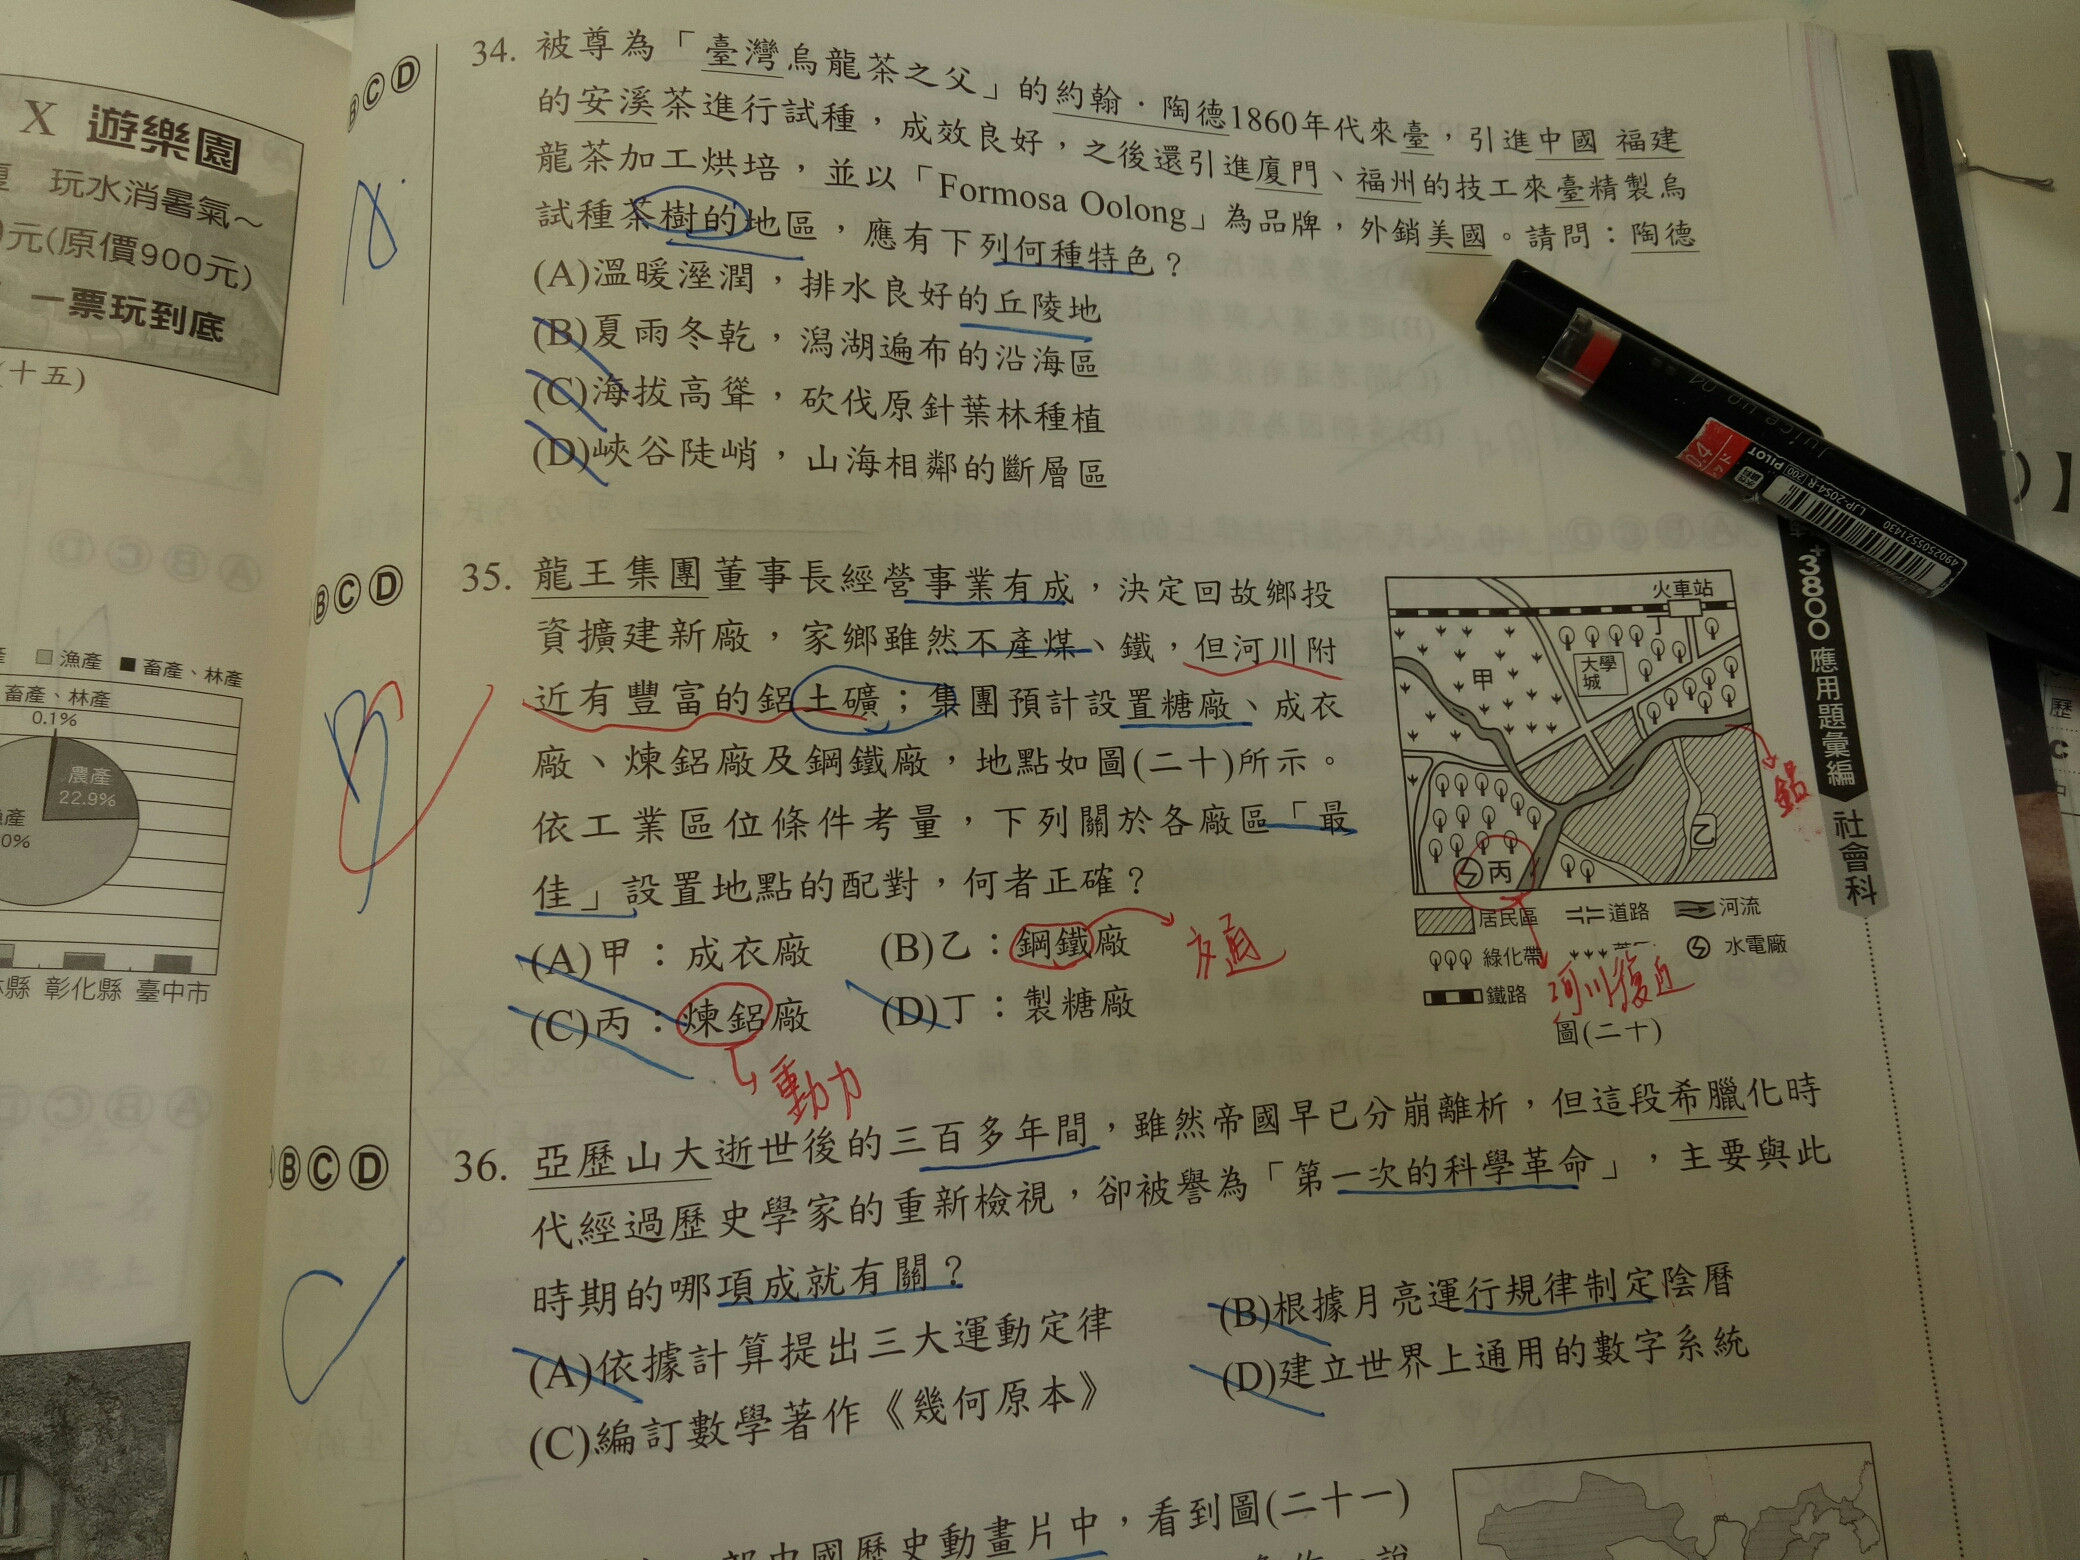 X 遊樂園
玩水消暑氣～
元(原價900元)
一票玩到底
(十五)
漁產 畜產、林產
畜產、林產
0.1%
農產
22.9%
彰化縣 臺中市
34. 被尊為「臺灣烏龍茶之父」的約翰．陶德1860年代來臺，引進中國 福建
的安溪茶進行試種，成效良好，之後還引進廈門、福州的技工來臺精製烏
龍茶加工烘培，並以「Formosa Oolong」為品牌，外銷美國。請問：陶德
試種茶樹的地區，應有下列何種特色？
(A)溫暖溼潤，排水良好的丘陵地
(B)夏雨冬乾，潟湖遍布的沿海區
(C)海拔高聳，砍伐原針葉林種植
(D)峽谷陡峭，山海相鄰的斷層區
B C D
35. 龍王集團董事長經營事業有成，決定回故鄉投
資擴建新廠，家鄉雖然不產煤、鐵，但河川附
近有豐富的鋁土礦；集團預計設置糖廠、成衣
廠、煉鋁廠及鋼鐵廠，地點如圖(二十)所示。
依工業區位條件考量，下列關於各廠區「最
佳」設置地點的配對，何者正確？
(A)甲：成衣廠 (B)乙：鋼鐵廠
(C)丙：煉鋁廠 (D)丁：製糖廠
交通
動力
火車站
丁
大學
城
甲
乙
丙
鋁
居民區 道路 河流
綠化帶 水電廠
鐵路
河川復近
圖(二十)
B C D
36. 亞歷山大逝世後的三百多年間，雖然帝國早已分崩離析，但這段希臘化時
代經過歷史學家的重新檢視，卻被譽為「第一次的科學革命」，主要與此
時期的哪項成就有關？
(A)依據計算提出三大運動定律 (B)根據月亮運行規律制定陰曆
(C)編訂數學著作《幾何原本》 (D)建立世界上通用的數字系統
B C D
C
中國歷史動畫片中，看到圖(二十一)
3800 應用題彙編 社會科
PILOT
LJP-20S4-R
4902505521430